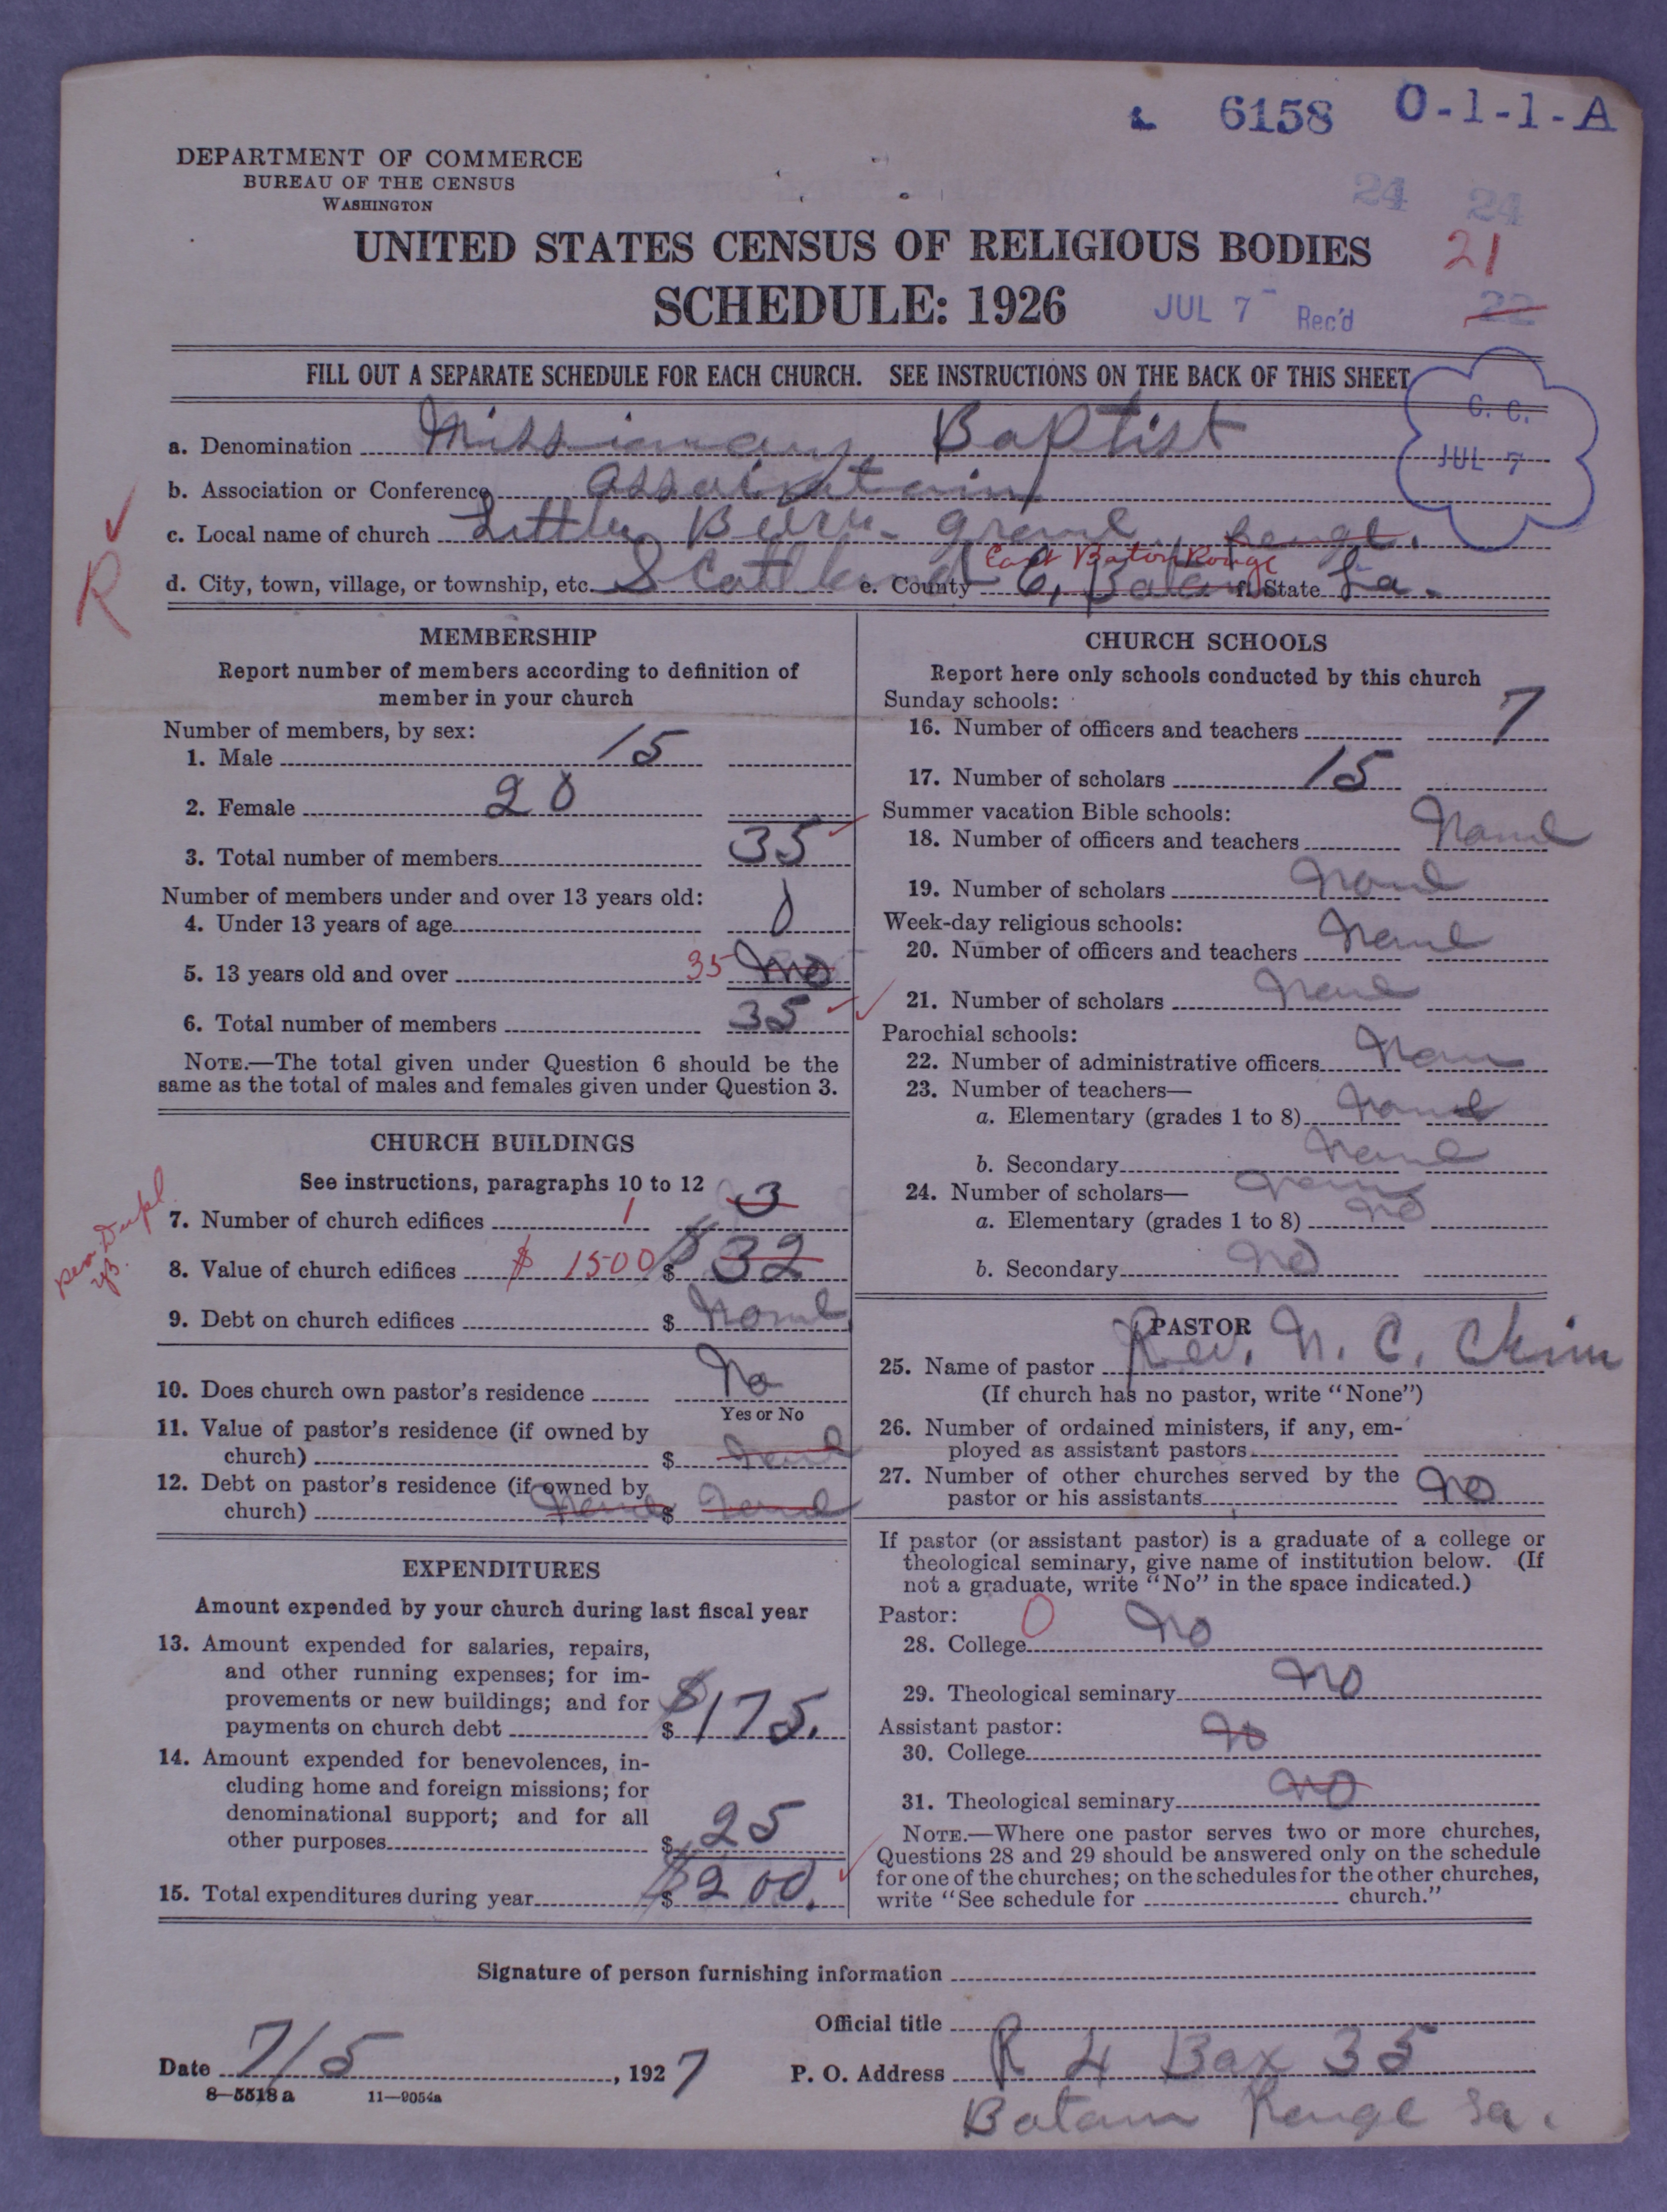 6158 O-1-1-A
DEPARTMENT OF COMMERCE
BUREAU OF THE CENSUS
WASHINGTON
24 24
UNITED STATES CENSUS OF RELIGIOUS BODIES
21
SCHEDULE: 1926
JUL 7 Rec'd
22
FILL OUT A SEPARATE SCHEDULE FOR EACH CHURCH. SEE INSTRUCTIONS ON THE BACK OF THIS SHEET
C. C.
JUL 7
a. Denomination Missionary Baptist
b. Association or Conference
c. Local name of church Little
R
East Baton Rouge
d. City, town, village, or township, etc. Scotland e. County E, f. State La.
MEMBERSHIP
Report number of members according to definition of
member in your church
Number of members, by sex:
1. Male 15
2. Female 20
3. Total number of members 35
Number of members under and over 13 years old:
4. Under 13 years of age 0
5. 13 years old and over 35 no
6. Total number of members 35
NOTE.—The total given under Question 6 should be the
same as the total of males and females given under Question 3.
CHURCH BUILDINGS
See instructions, paragraphs 10 to 12
7. Number of church edifices 1 3
8. Value of church edifices $ 1500 $ 32
9. Debt on church edifices $ None
10. Does church own pastor's residence No
Yes or No
11. Value of pastor's residence (if owned by
church) $ None
12. Debt on pastor's residence (if owned by
church) None $ None
EXPENDITURES
Amount expended by your church during last fiscal year
13. Amount expended for salaries, repairs,
and other running expenses; for im-
provements or new buildings; and for
payments on church debt $ $175.
14. Amount expended for benevolences, in-
cluding home and foreign missions; for
denominational support; and for all
other purposes $ 25
15. Total expenditures during year $ $200.
CHURCH SCHOOLS
Report here only schools conducted by this church
Sunday schools:
16. Number of officers and teachers 7
17. Number of scholars 15
Summer vacation Bible schools:
18. Number of officers and teachers None
19. Number of scholars None
Week-day religious schools:
20. Number of officers and teachers None
21. Number of scholars None
Parochial schools:
22. Number of administrative officers None
23. Number of teachers—
a. Elementary (grades 1 to 8) None
b. Secondary None
24. Number of scholars— None
a. Elementary (grades 1 to 8) no
b. Secondary no
PASTOR
25. Name of pastor Rev. N. C.
(If church has no pastor, write "None")
26. Number of ordained ministers, if any, em-
ployed as assistant pastors
27. Number of other churches served by the
pastor or his assistants no
If pastor (or assistant pastor) is a graduate of a college or
theological seminary, give name of institution below. (If
not a graduate, write "No" in the space indicated.)
Pastor: 0
28. College no
29. Theological seminary no
Assistant pastor:
30. College no
31. Theological seminary no
NOTE.—Where one pastor serves two or more churches,
Questions 28 and 29 should be answered only on the schedule
for one of the churches; on the schedules for the other churches,
write "See schedule for church."
Signature of person furnishing information
Official title
Date 7/5, 1927 P. O. Address R 4 Box 35
8—5518a 11—9054a
Batan Rouge La.